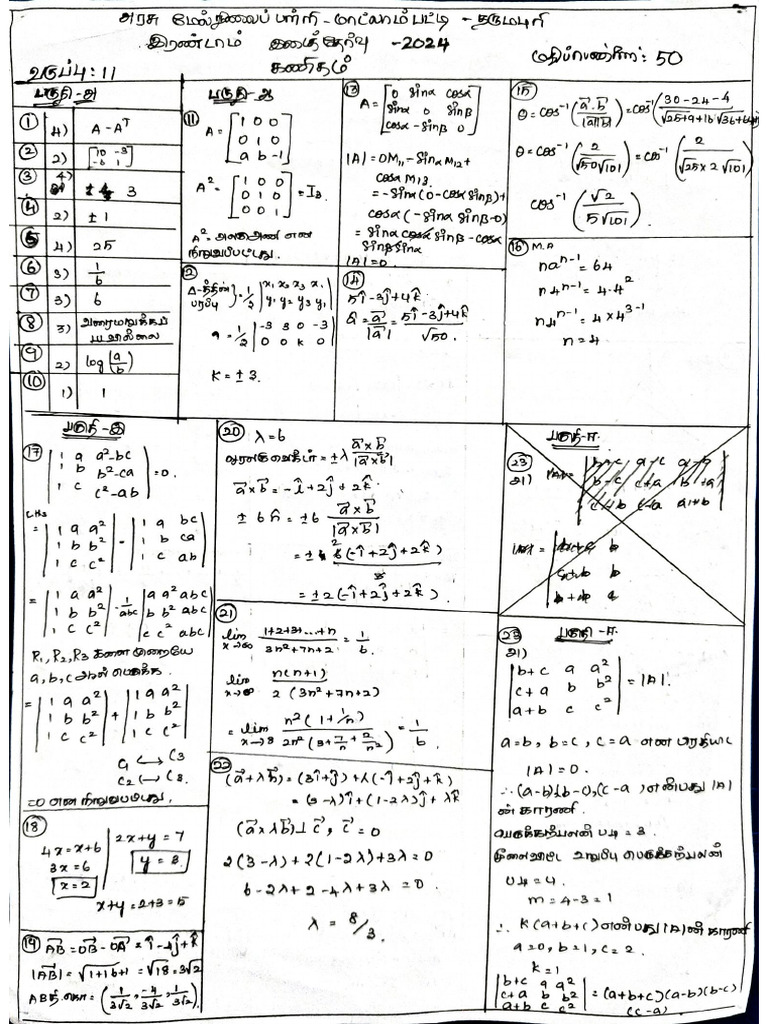 அரசு மேல்நிலைப் பள்ளி - மாட்லாம்பட்டி - தருமபுரி
இரண்டாம் இடைத்தேர்வு - 2024
வகுப்பு : 11 கணிதம் மதிப்பெண்கள்: 50
பகுதி - அ
① 4) A - Aᵀ
② 2) [10 -3 / -6 1]
③ 4) 3
④ 2) ± 1
⑤ 4) 25
⑥ 3) 1/6
⑦ 3) 6
⑧ 3)
⑨ 2) log(a/b)
⑩ 1) 1
பகுதி - ஆ
⑪ A = [1 0 0 / 0 1 0 / a b -1]
A² = [1 0 0 / 0 1 0 / 0 0 1] = I₃
A² = அலகு அணி என
நிறுவப்பட்டது.
⑫ Δ-த்தின் பரப்பு } = 1/2 |x₁ x₂ x₃ x₁ / y₁ y₂ y₃ y₁|
9 = 1/2 |-3 3 0 -3 / 0 0 k 0|
K = ± 3.
⑬ A = [0 sinα cosα / sinα 0 sinβ / cosα -sinβ 0]
|A| = 0M₁₁ - sinα M₁₂ +
cosα M₁₃
= -sinα (0 - cosα sinβ) +
cosα (-sinα sinβ - 0)
= sinα cosα sinβ - cosα
sinβ sinα
|A| = 0.
⑭ 5î - 3ĵ + 4k̂
â = a⃗/|a⃗| = (5î - 3ĵ + 4k̂)/√50.
⑮
θ = cos⁻¹(a⃗.b⃗/|a⃗||b⃗|) = cos⁻¹(30 - 24 - 4/√25+9+16 √36+64+1)
θ = cos⁻¹(2/√50√101) = cos⁻¹(2/√25×2 √101)
cos⁻¹(√2/5√101)
⑯ M.A
naⁿ⁻¹ = 64
n4ⁿ⁻¹ = 4·4²
n4ⁿ⁻¹ = 4×4³⁻¹
n = 4.
பகுதி - இ
⑰ |1 a a²-bc / 1 b b²-ca / 1 c c²-ab| = 0.
LHS
= |1 a a² / 1 b b² / 1 c c²| - |1 a bc / 1 b ca / 1 c ab|
= |1 a a² / 1 b b² / 1 c c²| - 1/abc |a a² abc / b b² abc / c c² abc|
R₁, R₂, R₃ களை முறையே
a, b, c ஆல் பெருக்க.
= |1 a a² / 1 b b² / 1 c c²| + |1 a a² / 1 b b² / 1 c c²|
C₁ ↔ C₃
C₂ ↔ C₃.
= 0 என நிறுவப்பட்டது.
⑱
4x = x+6
3x = 6
x = 2
2x+y = 7
y = 3.
x+y = 2+3 = 5
⑲ A⃗B = O⃗B - O⃗A = î - 4ĵ + k̂
|A⃗B| = √1+16+1 = √18 = 3√2
ABதி.கொ = (1/3√2, -4/3√2, 1/3√2)
⑳ λ = 6
= ± λ a⃗×b⃗/|a⃗×b⃗|
a⃗×b⃗ = -î + 2ĵ + 2k̂
± 6 n̂ = ± 6 a⃗×b⃗/|a⃗×b⃗|
= ± 6 (-î + 2ĵ + 2k̂)/3
= ± 2 (-î + 2ĵ + 2k̂)
㉑
lim x→∞ 1+2+3+...+n/3n²+7n+2 = 1/6.
lim x→∞ n(n+1)/2 (3n²+7n+2)
= lim x→∞ n²(1+1/n)/2n²(3+7/n+2/n²) = 1/6.
㉒
(a⃗+λb⃗) = (3î+ĵ) + λ(-î+2ĵ+k̂)
= (3-λ)î + (1-2λ)ĵ + λk̂
(a⃗×λb⃗) ⊥ c⃗, c⃗ = 0
2(3-λ) + 2(1-2λ) + 3λ = 0
6 - 2λ + 2 - 4λ + 3λ = 0.
λ = 8/3.
பகுதி - ஈ.
㉓
அ)
பகுதி - ஈ.
㉓
அ)
|b+c a a² / c+a b b² / a+b c c²| = |A|.
a=b, b=c, c=a என பிரதியிட
|A| = 0.
∴ (a-b)(b-c),(c-a) என்பது |A|
ன் காரணி.
படி = 3.
மூலைவிட்ட உறுப்பு பெருக்கற்பலன்
படி = 4.
m = 4-3 = 1
∴ K(a+b+c) என்பது |A|ன் காரணி
a=0, b=1, c=2.
k = 1
|b+c a a² / c+a b b² / a+b c c²| = (a+b+c)(a-b)(b-c)
(c-a)